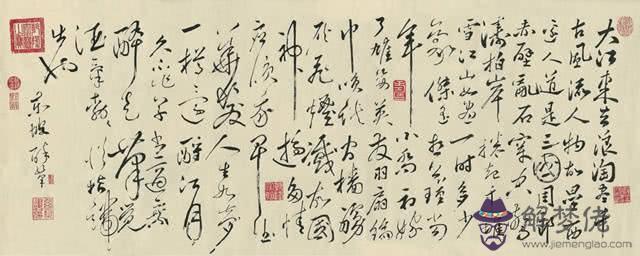 大江東去浪淘盡千
古風流人物故壘西
邊人道是三國周郎
赤壁亂石穿空驚
濤拍岸捲起千堆
雪江山如畫一時多少
豪傑遙想公瑾當
年小喬初嫁
了雄姿英發羽扇綸
巾談笑間檣艣
灰飛煙滅故國
神遊多情
應笑我早生
華髮人生如夢
一樽還酹江月
久不作草書適乘
醉走筆覺
酒氣勃勃從指端
出也
東坡醉筆
解梦佬
www.jiemenglao.com